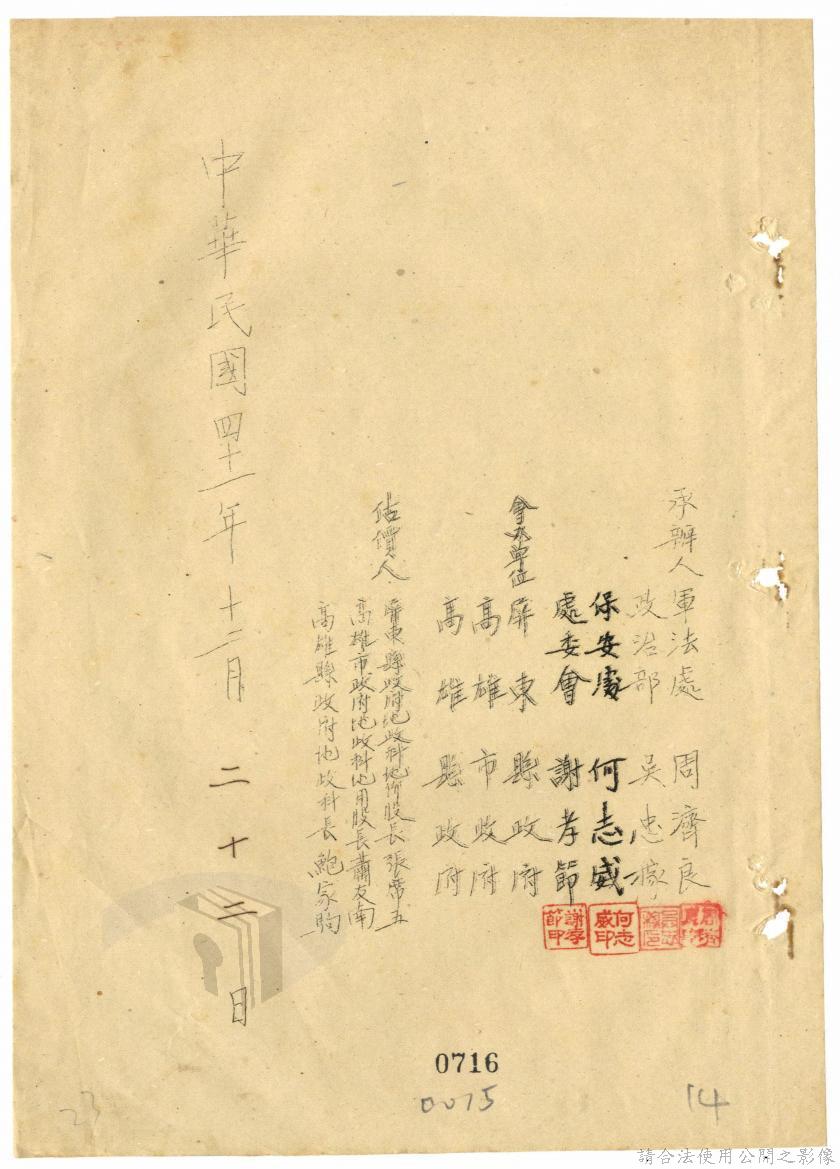 承辦人 軍法處 周濟良
政治部 吳忠
保安處 何志威
處委會 謝孝節
會本單位 屏東縣政府
高雄市政府
高雄縣政府
估價人 屏東縣政府地政科地價股長 張席五
高雄市政府地政科地用股長 蕭友南
高雄縣政府地政科長 鮑家駒
中華民國四十一年十二月二十二日
何志威印
謝孝節印
0716
0075
14
23
請合法使用公開之影像